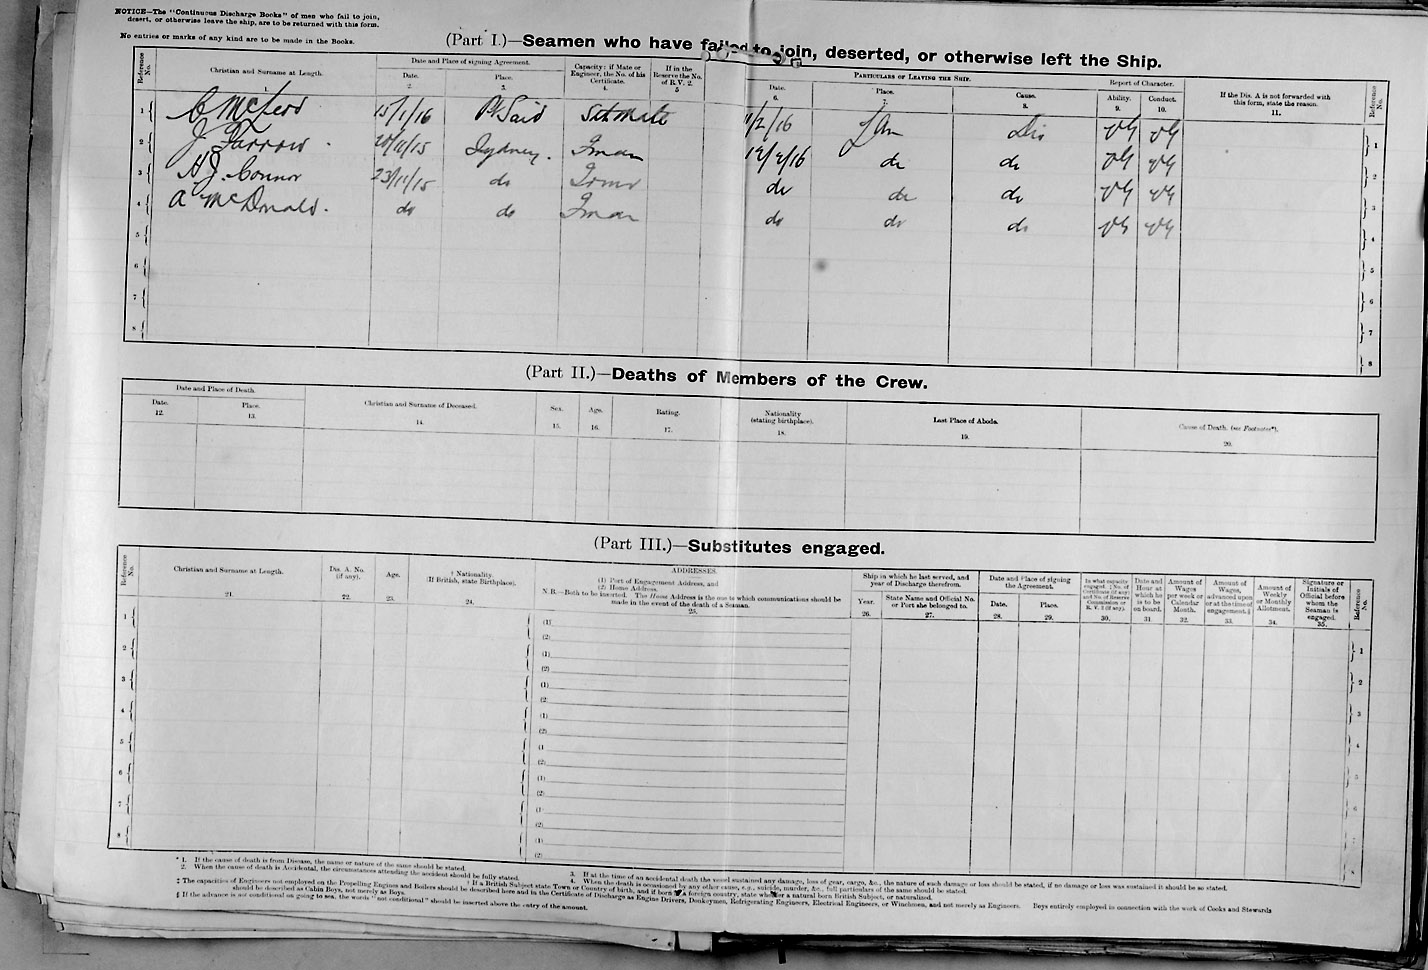 NOTICE—The "Continuous Discharge Books" of men who fail to join,
desert, or otherwise leave the ship, are to be returned with this form.
No entries or marks of any kind are to be made in the Books.
(Part I.)—Seamen who have failed to join, deserted, or otherwise left the Ship.
Reference No.
Christian and Surname at Length.
1.
Date and Place of signing Agreement.
Date.
2.
Place.
3.
Capacity: if Mate or
Engineer, the No. of his
Certificate.
4.
If in the
Reserve the No.
of R. V. 2.
5
PARTICULARS OF LEAVING THE SHIP.
Date.
6.
Place.
7.
Cause.
8.
Report of Character.
Ability.
9.
Conduct.
10.
If the Dis. A is not forwarded with
this form, state the reason.
11.
Reference No.
1 C McLeod 15/1/16 Pt Said 2/16 Dis VG VG 1
2 J Farrow. 15 Sydney. Fman 16 do do VG VG 2
3 H J. Connor 23/11/15 do do do do VG VG 3
4 A McDonald. do do Fman do do do VG VG 4
5 5
6 6
7 7
8 8
(Part II.)—Deaths of Members of the Crew.
Date and Place of Death.
Date.
12.
Place.
13.
Christian and Surname of Deceased.
14.
Sex.
15.
Age.
16.
Rating.
17.
Nationality
(stating birthplace).
18.
Last Place of Abode.
19.
Cause of Death. (see Footnotes*).
20.
(Part III.)—Substitutes engaged.
Reference No.
Christian and Surname at Length.
21.
Dis. A. No.
(if any).
22.
Age.
23.
† Nationality.
(If British, state Birthplace).
24.
ADDRESSES.
(1) Port of Engagement Address, and
(2) Home Address.
N.B.—Both to be inserted. The Home Address is the one to which communications should be
made in the event of the death of a Seaman.
25.
Ship in which he last served, and
year of Discharge therefrom.
Year.
26.
State Name and Official No.
or Port she belonged to.
27.
Date and Place of signing
the Agreement.
Date.
28.
Place.
29.
In what capacity
engaged, ‡ No. of
Certificate (if any)
and No. of Reserve
Commission or
R. V. 2 (if any).
30.
Date and
Hour at
which he
is to be
on board.
31.
Amount of
Wages
per week or
Calendar
Month.
32.
Amount of
Wages,
advanced upon
or at the time of
engagement.§
33.
Amount of
Weekly
or Monthly
Allotment.
34.
Signature or
Initials of
Official before
whom the
Seaman is
engaged.
35.
Reference No.
1 (1) 1
(2)
2 (1) 2
(2)
3 (1) 3
(2)
4 (1) 4
(2)
5 (1 5
(2)
6 (1) 6
(2)
7 (1) 7
(2)
8 (1) 8
(2)
* 1. If the cause of death is from Disease, the name or nature of the same should be stated.
2. When the cause of death is Accidental, the circumstances attending the accident should be fully stated.
3. If at the time of an accidental death the vessel sustained any damage, loss of gear, cargo, &c., the nature of such damage or loss should be stated, if no damage or loss was sustained it should be so stated.
4. When the death is occasioned by any other cause, e.g., suicide, murder, &c., full particulars of the same should be stated.
† If a British Subject state Town or Country of birth, and if born in a foreign country, state whether a natural born British Subject, or naturalized.
‡ The capacities of Engineers not employed on the Propelling Engines and Boilers should be described here and in the Certificate of Discharge as Engine Drivers, Donkeymen, Refrigerating Engineers, Electrical Engineers, or Winchmen, and not merely as Engineers. Boys entirely employed in connection with the work of Cooks and Stewards
should be described as Cabin Boys, not merely as Boys.
§ If the advance is not conditional on going to sea, the words "not conditional" should be inserted above the entry of the amount.